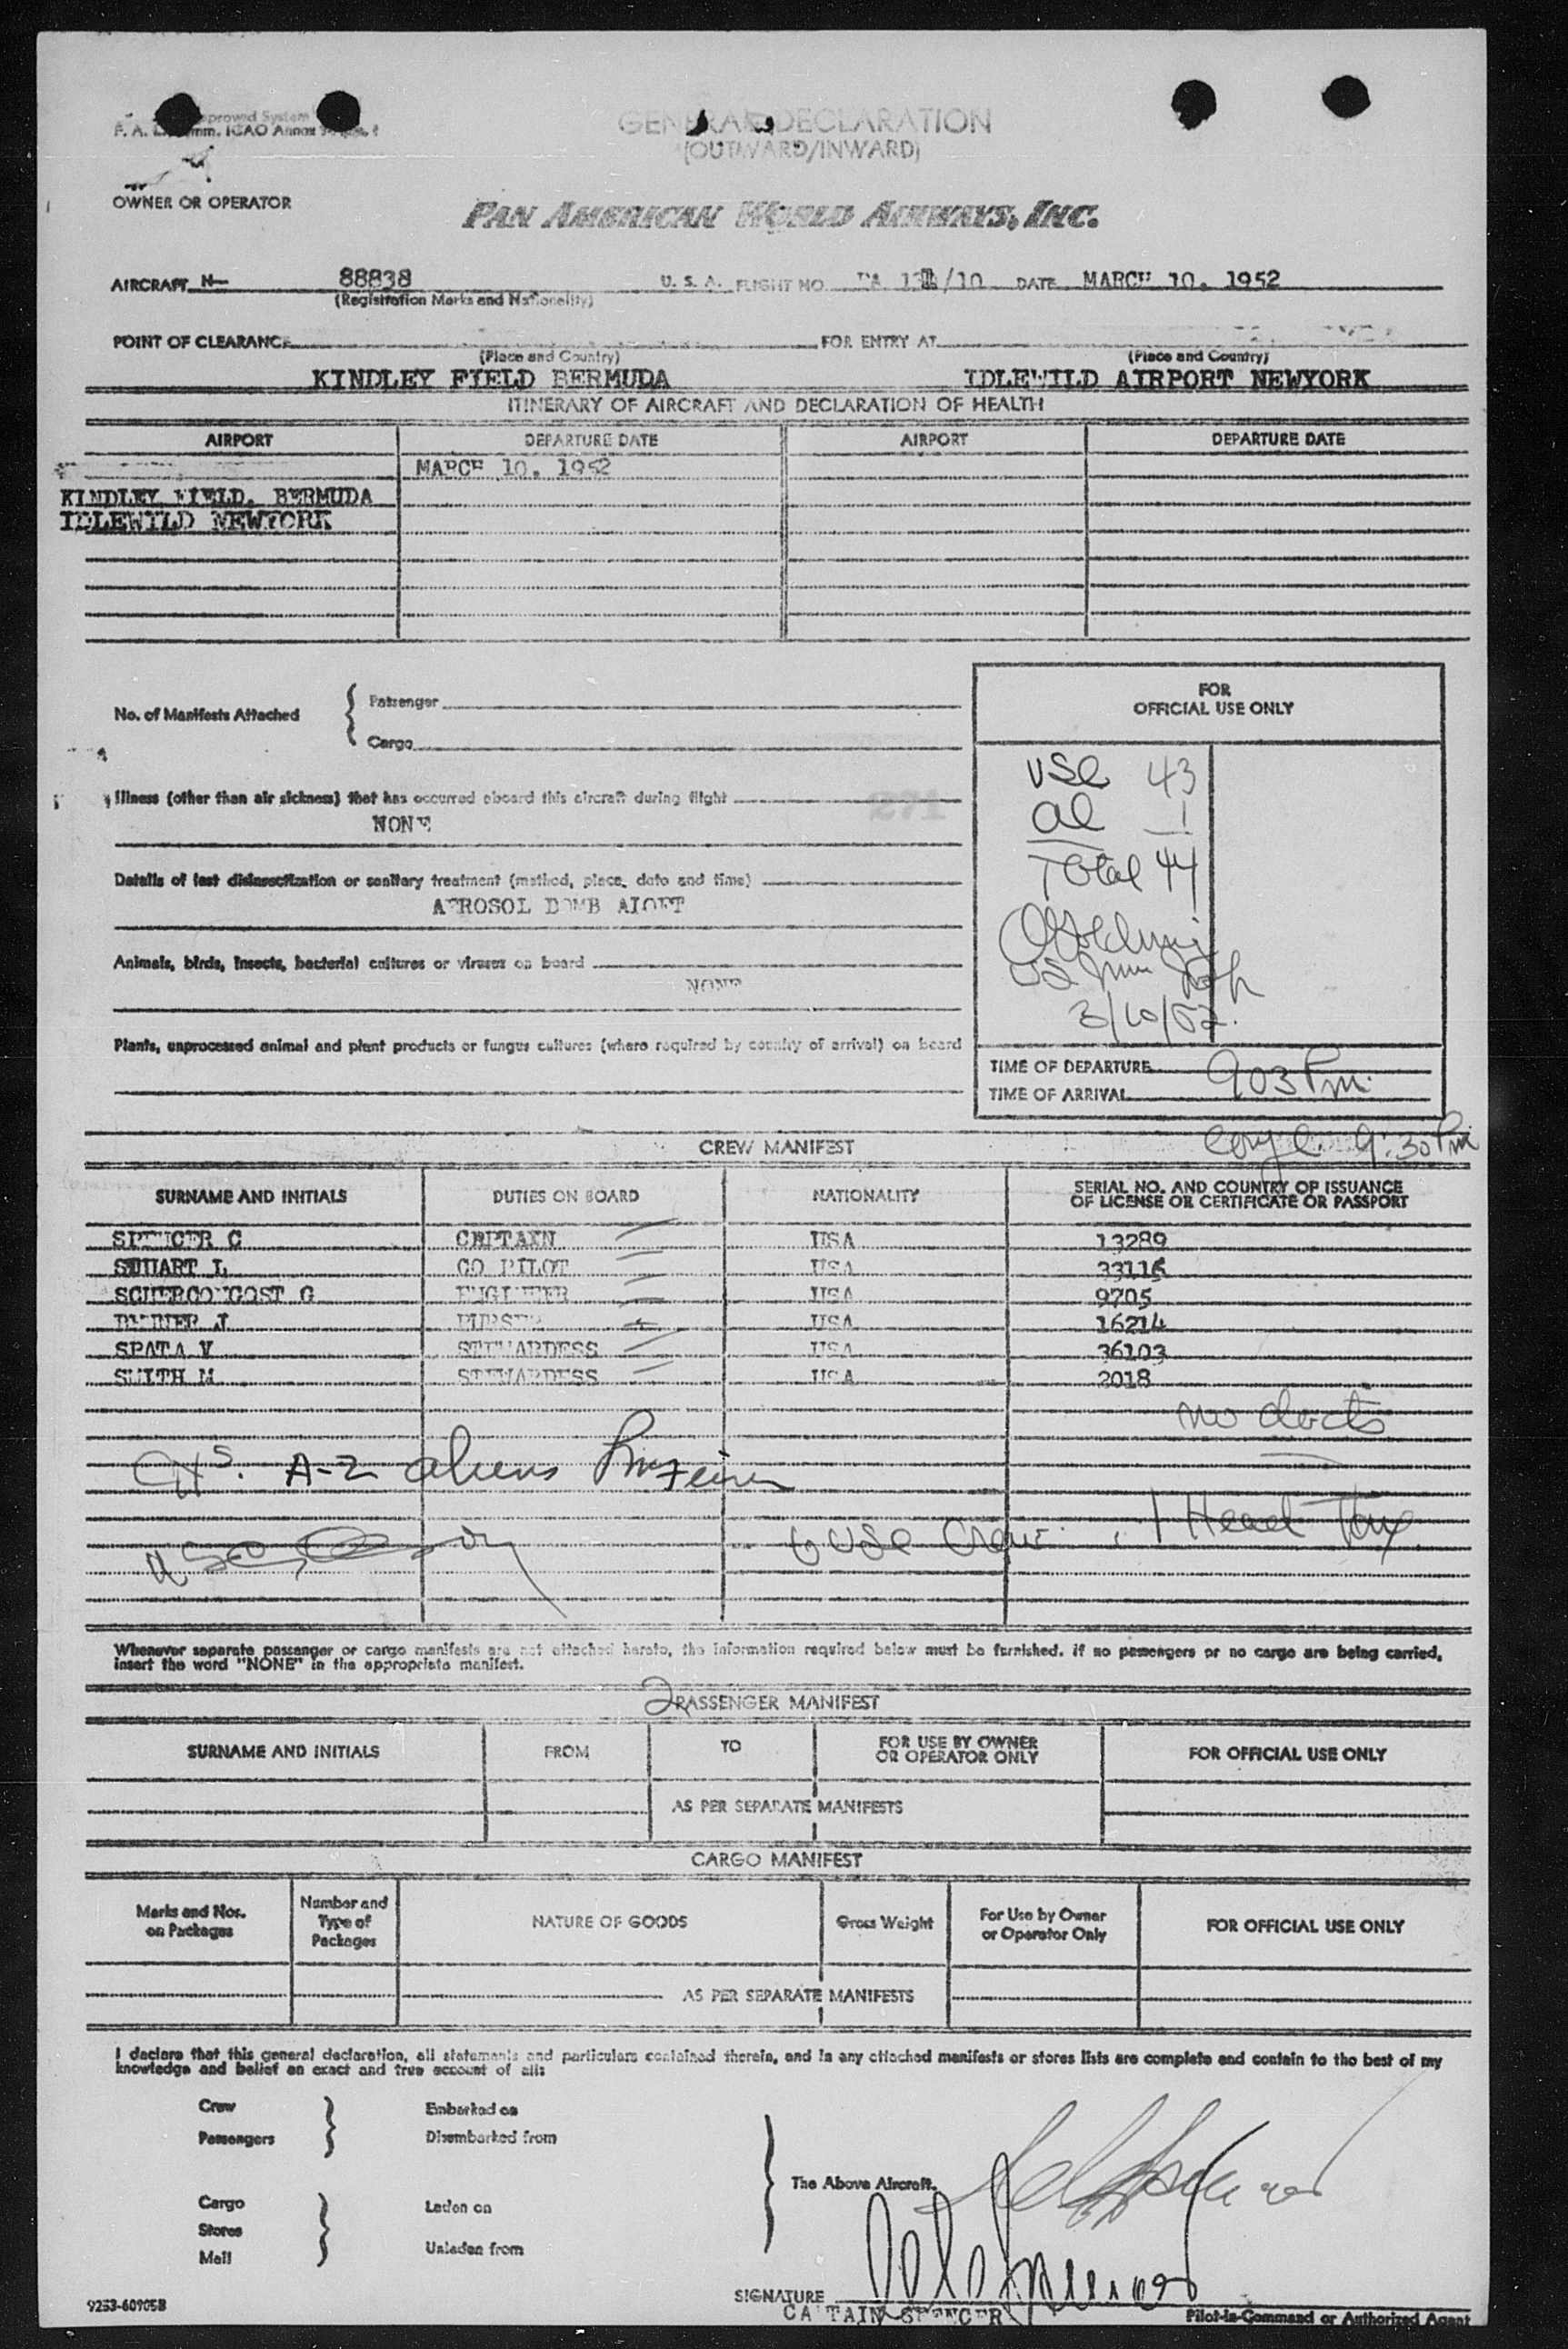 GENERAL DECLARATION
(OUTWARD/INWARD)
OWNER OR OPERATOR
PAN AMERICAN WORLD AIRWAYS, INC.
AIRCRAFT N- 88838 U. S. A. FLIGHT NO. /10 DATE MARCH 10. 1952
(Registration Marks and Nationality)
POINT OF CLEARANCE FOR ENTRY AT
(Place and Country) (Place and Country)
KINDLEY FIELD BERMUDA IDLEWILD AIRPORT NEWYORK
ITINERARY OF AIRCRAFT AND DECLARATION OF HEALTH
AIRPORT DEPARTURE DATE AIRPORT DEPARTURE DATE
MARCH 10. 1952
KINDLEY FIELD. BERMUDA
IDLEWILD NEWYORK
No. of Manifests Attached { Passenger
Cargo
FOR
OFFICIAL USE ONLY
USC 43
al 1
Total 44
3/10/52.
Illness (other than air sickness) that has occurred aboard this aircraft during flight
NONE
Details of last disinsectization or sanitary treatment (method, place, date and time)
AEROSOL BOMB ALOFT
Animals, birds, insects, bacterial cultures or viruses on board
NONE
Plants, unprocessed animal and plant products or fungus cultures (where required by country of arrival) on board
TIME OF DEPARTURE 903 Pm.
TIME OF ARRIVAL
9:30 Pm
CREW MANIFEST
SURNAME AND INITIALS DUTIES ON BOARD NATIONALITY SERIAL NO. AND COUNTRY OF ISSUANCE
OF LICENSE OR CERTIFICATE OR PASSPORT
SPENCER C CAPTAIN USA 13289
STUART L CO PILOT USA 33116
G ENGINEER USA 9705
J PURSER USA 16214
SPATA V STEWARDESS USA 36103
SMITH M STEWARDESS USA 2018
no docts
A-2 aliens
6 USC Crew 1 Head Tax
Whenever separate passenger or cargo manifests are not attached hereto, the information required below must be furnished. If no passengers or no cargo are being carried,
insert the word "NONE" in the appropriate manifest.
2 PASSENGER MANIFEST
SURNAME AND INITIALS FROM TO FOR USE BY OWNER
OR OPERATOR ONLY FOR OFFICIAL USE ONLY
AS PER SEPARATE MANIFESTS
CARGO MANIFEST
Marks and Nos.
on Packages Number and
Type of
Packages NATURE OF GOODS Gross Weight For Use by Owner
or Operator Only FOR OFFICIAL USE ONLY
AS PER SEPARATE MANIFESTS
I declare that this general declaration, all statements and particulars contained therein, and in any attached manifests or stores lists are complete and contain to the best of my
knowledge and belief an exact and true account of all:
Crew Embarked on
Passengers Disembarked from
The Above Aircraft.
Cargo Laden on
Stores
Mail Unladen from
SIGNATURE
CAPTAIN SPENCER Pilot-in-Command or Authorized Agent
9253-60905B